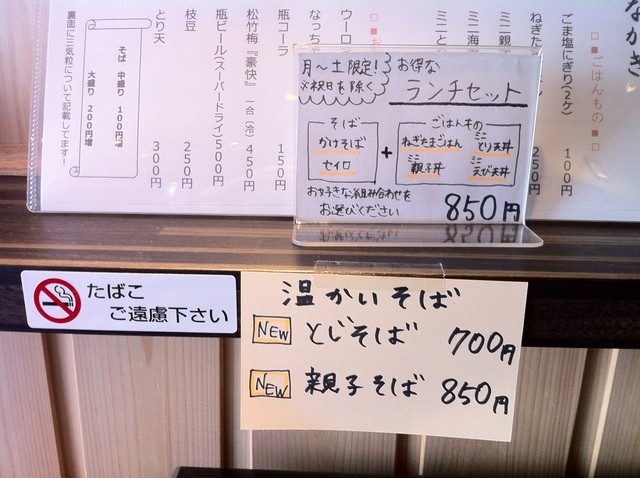 ながき
■ごはんもの■
ごま塩にぎり(2ケ) 100円
ねぎた
250円
ミニ親
ミニ海
ミニと
ウーロン
なっち
瓶コーラ 150円
松竹梅『豪快』 一合(冷) 450円
瓶ビール(スーパードライ) 500円
枝豆 250円
とり天 300円
そば 中盛り 100円増
大盛り 200円増
裏面に三気粒について記載してます!
月～土限定!
※祝日を除く
お得な
ランチセット
そば
かけそば
セイロ
+
ごはんもの
ねぎたまごはん
ミニとり天丼
ミニ親子丼
ミニえび天丼
お好きな組み合わせを
お選びください
850円
たばこ
ご遠慮下さい
温かいそば
NEW とじそば 700円
NEW 親子そば 850円